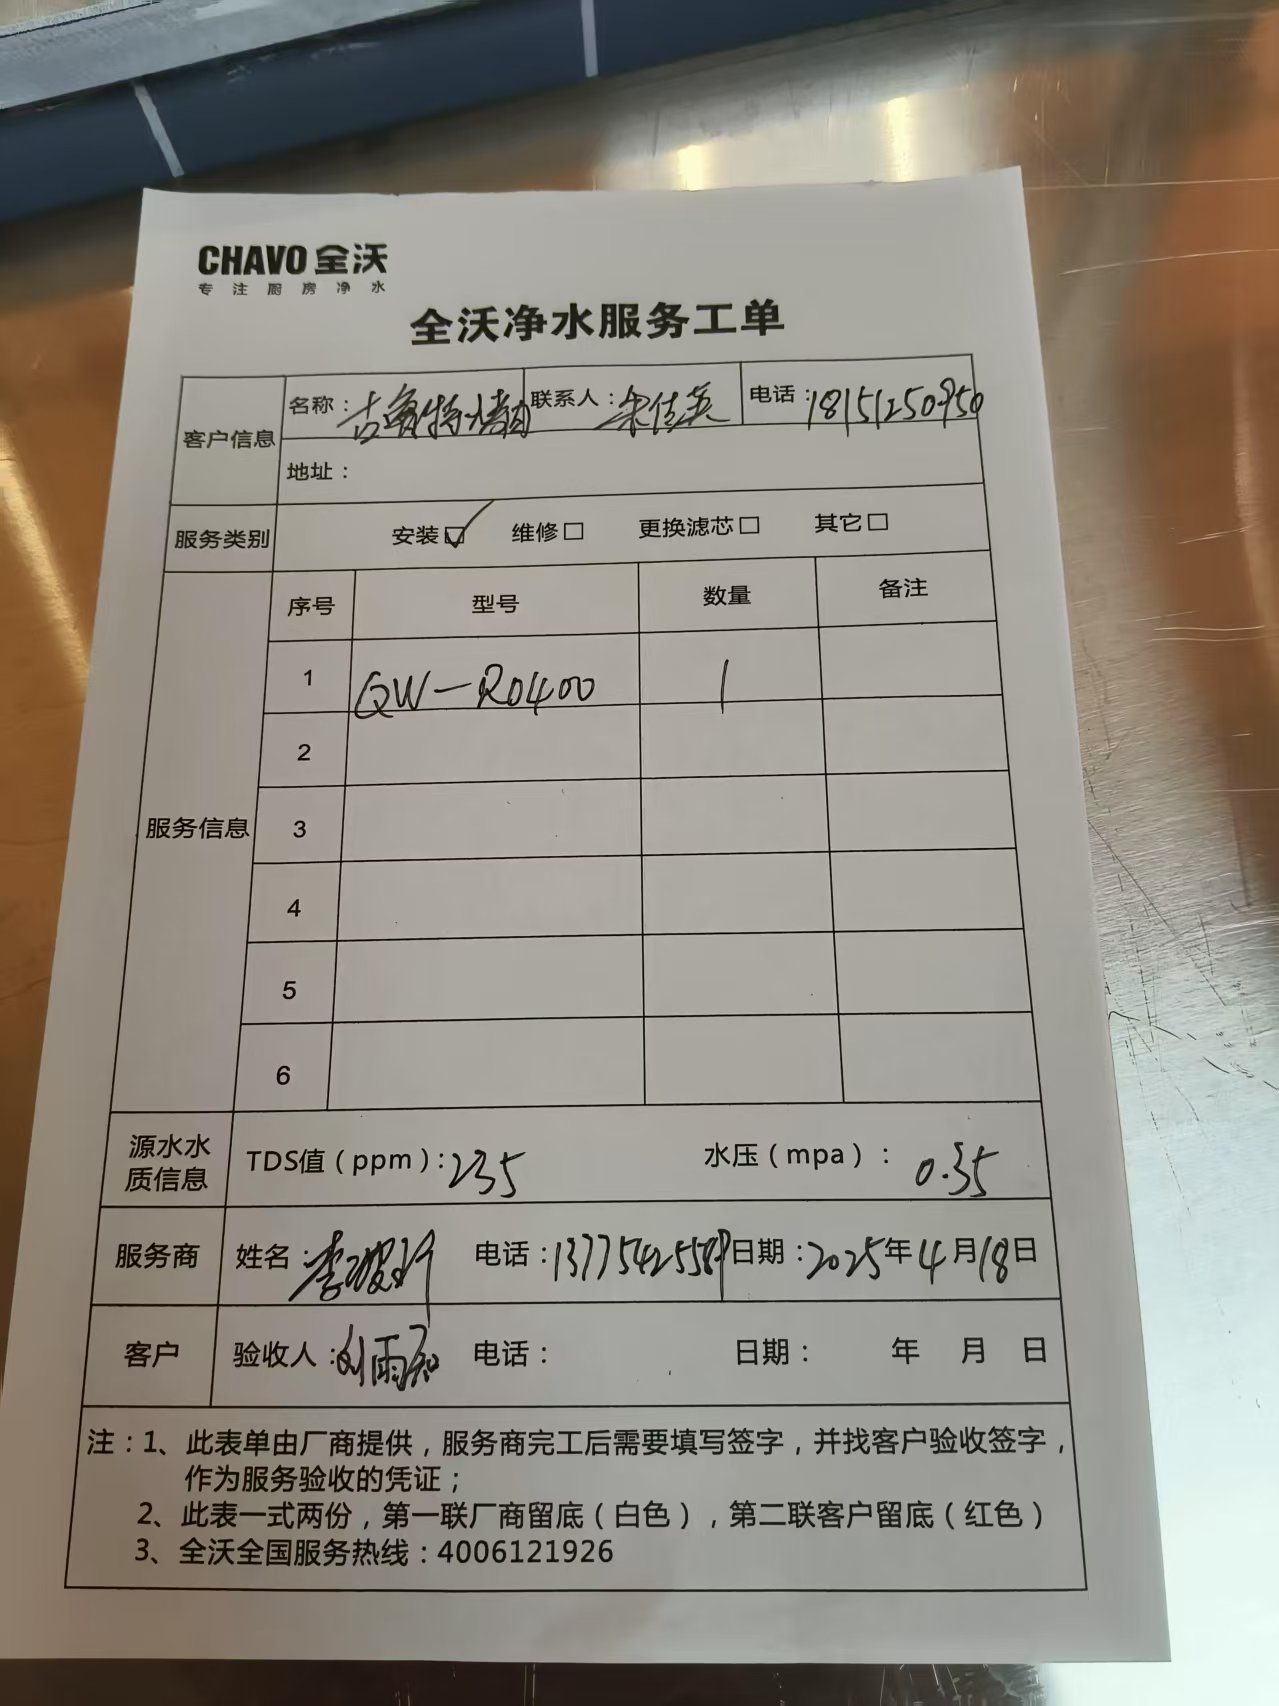 CHAVO 全沃
专注厨房净水
全沃净水服务工单
客户信息 名称： 联系人：宋佳英 电话：18151250950
地址：
服务类别 安装☑ 维修□ 更换滤芯□ 其它□
服务信息 序号 型号 数量 备注
1 QW-RO400 1
2
3
4
5
6
源水水质信息 TDS值（ppm）：235 水压（mpa）：0.35
服务商 姓名： 电话：13775425589 日期：2025年4月18日
客户 验收人：刘雨 电话： 日期： 年 月 日
注：1、此表单由厂商提供，服务商完工后需要填写签字，并找客户验收签字，
作为服务验收的凭证；
2、此表一式两份，第一联厂商留底（白色），第二联客户留底（红色）
3、全沃全国服务热线：4006121926